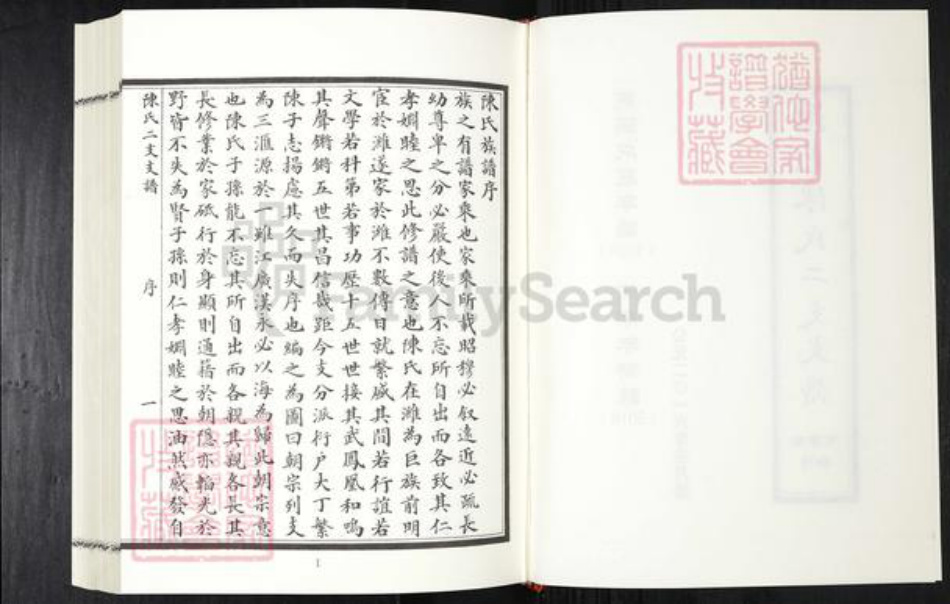 陳氏族譜序
族之有譜家乘也家乘所載昭穆必叙遠近必疏長
幼尊卑之分必嚴使後人不忘所自出而各致其仁
孝婣睦之思此修譜之意也陳氏在濰為巨族前明
宦於濰遂家於濰不數傳日就繁盛其間若行誼若
文學若科第若事功歷十五世世接其武鳳凰和鳴
其聲鏘鏘五世其昌信哉距今支分派衍户大丁繁
陳子志揚慮其久而失序也編之為圖曰朝宗列支
為三滙源於一雖江廣漢永必以海為歸此朝宗意
也陳氏子孫能不忘其所自出而各親其親各長其
長修業於家砥行於身顯則通籍於朝隐亦韜光於
野皆不失為賢子孫則仁孝婣睦之思油然感發自
陳氏二支支譜
序
一
1
FamilySearch
猶他家
譜學會
收藏
陳氏二支支譜